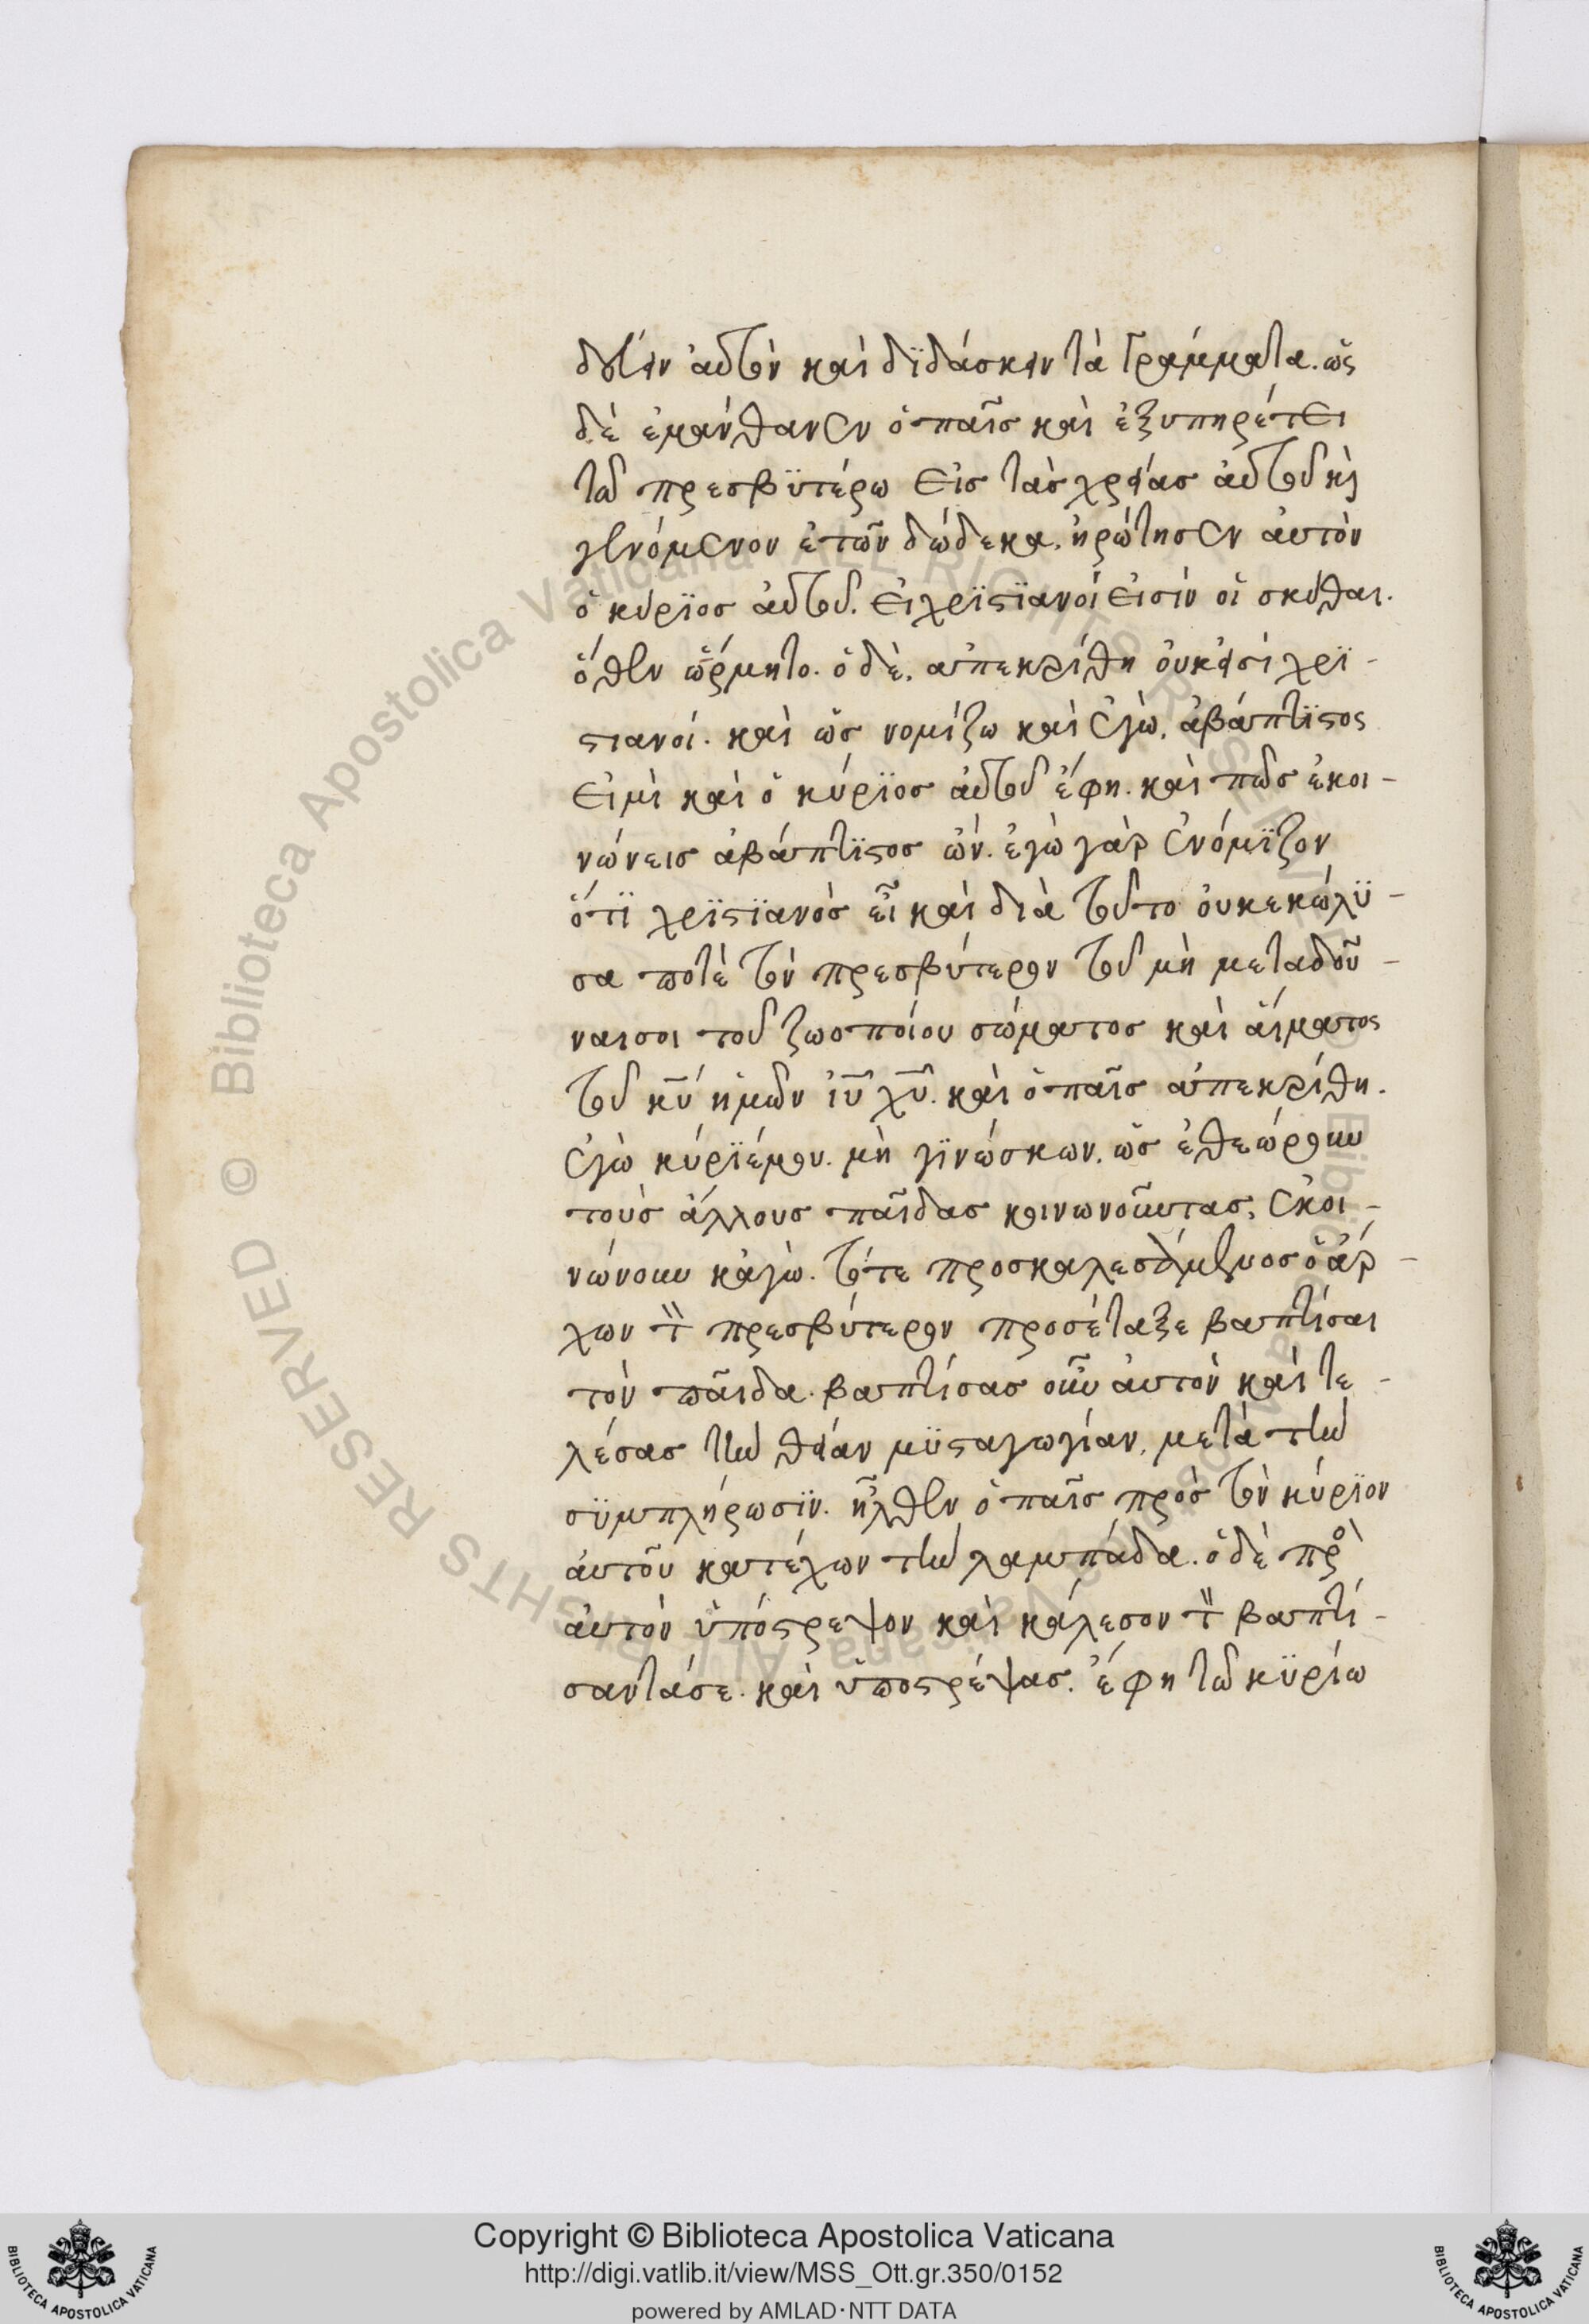 δουλεύειν αὐτὸν καὶ διδάσκειν τὰ γράμματα. ὡς
δὲ ἐμάνθανεν ὁ παῖς καὶ ἐξυπηρέτει
τῶ πρεσβϋτέρω εἰς τὰς χρείας αὐτοῦ κὶ
γενόμενον ἐτῶν δώδεκα. ἠρώτησεν αὐτὸν
ὁ κύρϊος αὐτοῦ. εἰ χρϊστϊανοί εἰσίν οἱ σκύθαι.
ὅθεν ὥρμητο. ὁ δὲ. ἀπεκρίθη οὐκ εἰσί χρϊ-
στιανοί. καὶ ὡς νομίζω καὶ ἐγὼ. ἀβάπτϊστος
εἰμὶ καὶ ὁ κύρϊος αὐτοῦ ἔφη. καὶ πῶς ἐκοι-
νώνεις ἀβάπτϊστος ὤν. ἐγὼ γὰρ ἐνόμϊζον
ὅτϊ χρϊστϊανὸς εἶ καὶ διὰ τοῦτο οὐκ ἐκώλϋ-
σα ποτὲ τὸν πρεσβύτερον τοῦ μὴ μεταδοῦ-
ναι σοι τοῦ ζωοποίου σώματος καὶ αἵματος
τοῦ κ̅υ̅ ἡμῶν ι̅υ̅ χ̅υ̅. καὶ ὁ παῖς ἀπεκρίθη.
ἐγὼ κύρϊέ μου. μὴ γϊνώσκων. ὡς ἐθεώρουν
τοὺς ἄλλους παῖδας κοινωνοῦντας, ἐκοι-
νώνουν κἀγὼ. τότε προσκαλεσάμενος ὁ ἄρ-
χων τ̅ πρεσβύτερον προσέταξε βαπτίσαι
τὸν παῖδα. βαπτίσας οὖν αὐτὸν καὶ τε-
λέσας τὴν θείαν μϋσταγωγίαν, μετὰ τὴν
σϋμπλήρωσϊν. ἦλθεν ὁ παῖς πρὸς τὸν κύρϊον
αὐτοῦ κατέχων τὴν λαμπάδα. ὁ δὲ πρὸ
αὐτὸν ὑπόστρεψον καὶ κάλεσον τ̅ βαπτί-
σαντά σε. καὶ ὑποστρέψας. ἔφη τῶ κϋρίω
Copyright © Biblioteca Apostolica Vaticana
http://digi.vatlib.it/view/MSS_Ott.gr.350/0152
powered by AMLAD·NTT DATA